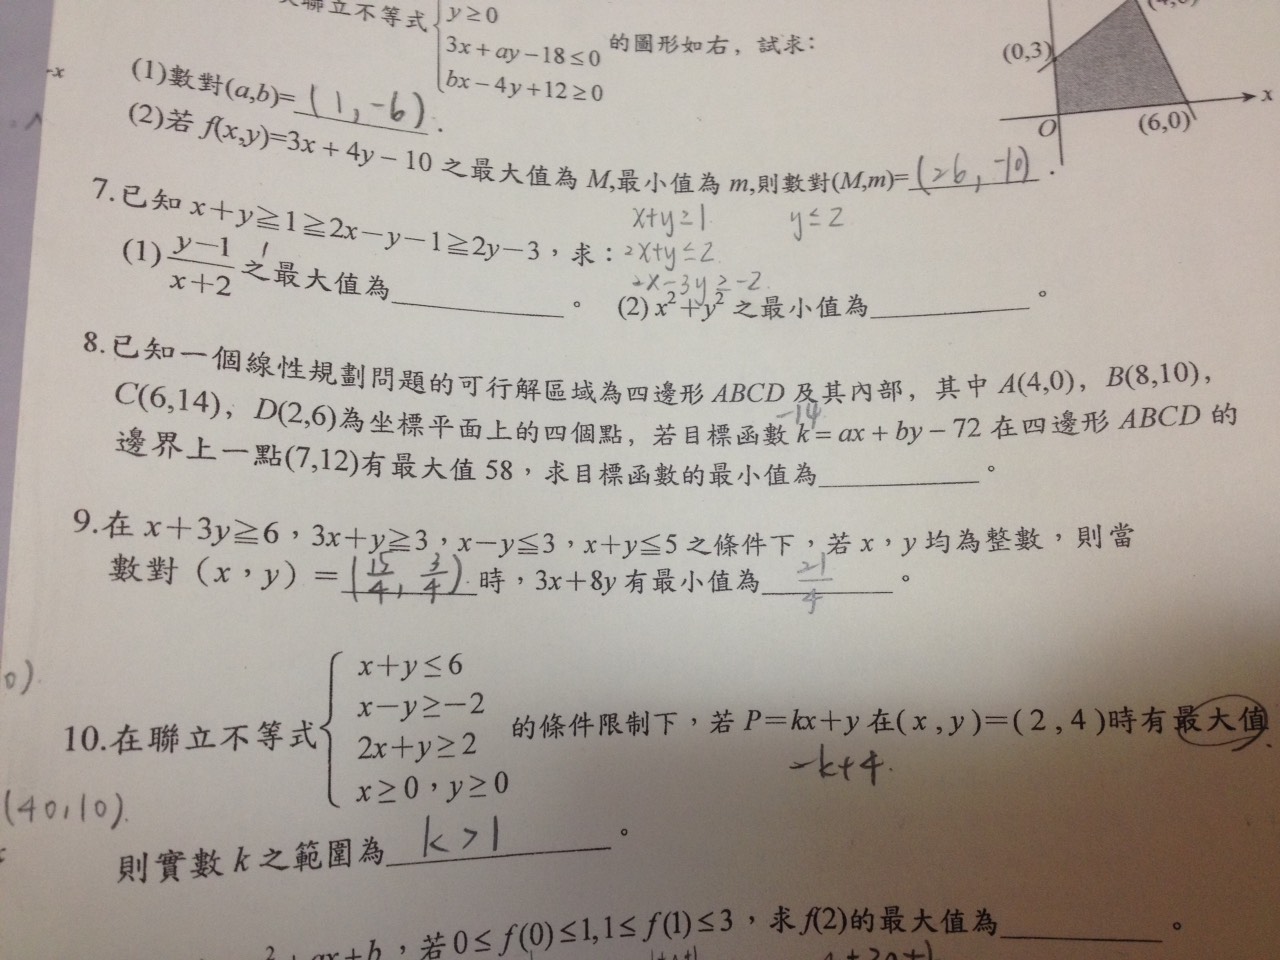 聯立不等式 y≥0
3x+ay-18≤0 的圖形如右，試求：
bx-4y+12≥0
(0,3)
x
O
(6,0)
x
(1)數對(a,b)=(1,-6).
(2)若 f(x,y)=3x+4y-10 之最大值為 M,最小值為 m,則數對(M,m)=(26,-10).
7.已知 x+y≧1≧2x-y-1≧2y-3，求：
x+y≥1 y≤2
2x+y≤2
2x-3y≥-2
(1) y-1/x+2 之最大值為______。 (2) x²+y² 之最小值為______。
8.已知一個線性規劃問題的可行解區域為四邊形 ABCD 及其內部，其中 A(4,0)，B(8,10)，
C(6,14)，D(2,6)為坐標平面上的四個點，若目標函數 k=ax+by-72 在四邊形 ABCD 的
-14
邊界上一點(7,12)有最大值 58，求目標函數的最小值為______。
9.在 x+3y≧6，3x+y≧3，x-y≦3，x+y≦5 之條件下，若 x，y 均為整數，則當
數對（x，y）=(15/4, 3/4)時，3x+8y 有最小值為 21/4 。
0).
x+y≤6
x-y≥-2
10.在聯立不等式 2x+y≥2 的條件限制下，若 P=kx+y 在(x,y)=(2,4)時有最大值
x≥0，y≥0
-k+4.
(40,10).
則實數 k 之範圍為 k>1 。
+ax+b，若 0≤f(0)≤1,1≤f(1)≤3，求 f(2)的最大值為______。